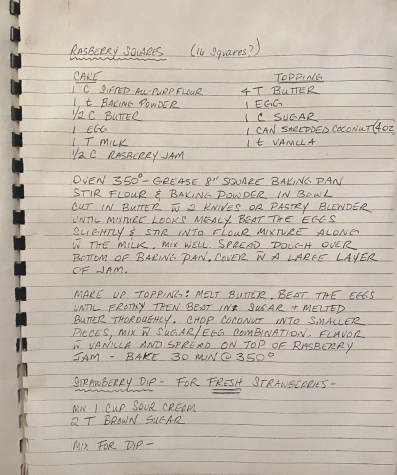 RASBERRY SQUARES (16 SQUARES?)
CAKE
1 C SIFTED ALL-PURP FLOUR
1 t BAKING POWDER
1/2 C BUTTER
1 EGG
1 T MILK
1/2 C RASBERRY JAM
TOPPING
4 T BUTTER
1 EGG
1 C SUGAR
1 CAN SHREDDED COCONUT (4oz
1 t VANILLA
OVEN 350° - GREASE 8" SQUARE BAKING PAN
STIR FLOUR & BAKING POWDER IN BOWL
CUT IN BUTTER w̄ 2 KNIVES OR PASTRY BLENDER
UNTIL MIXTURE LOOKS MEALY. BEAT THE EGGS
SLIGHTLY & STIR INTO FLOUR MIXTURE ALONG
w̄ THE MILK. MIX WELL. SPREAD DOUGH OVER
BOTTOM OF BAKING PAN. COVER w̄ A LARGE LAYER
OF JAM.
MAKE UP TOPPING: MELT BUTTER. BEAT THE EGGS
UNTIL FROTHY THEN BEAT IN SUGAR + MELTED
BUTTER THOROUGHLY. CHOP COCONUT INTO SMALLER
PIECES, MIX w̄ SUGAR/EGG COMBINATION. FLAVOR
w̄ VANILLA AND SPREAD ON TOP OF RASBERRY
JAM - BAKE 30 MIN @ 350°
STRAWBERRY DIP - FOR FRESH STRAWBERRIES -
MIX 1 CUP SOUR CREAM
2 T BROWN SUGAR
MIX FOR DIP -